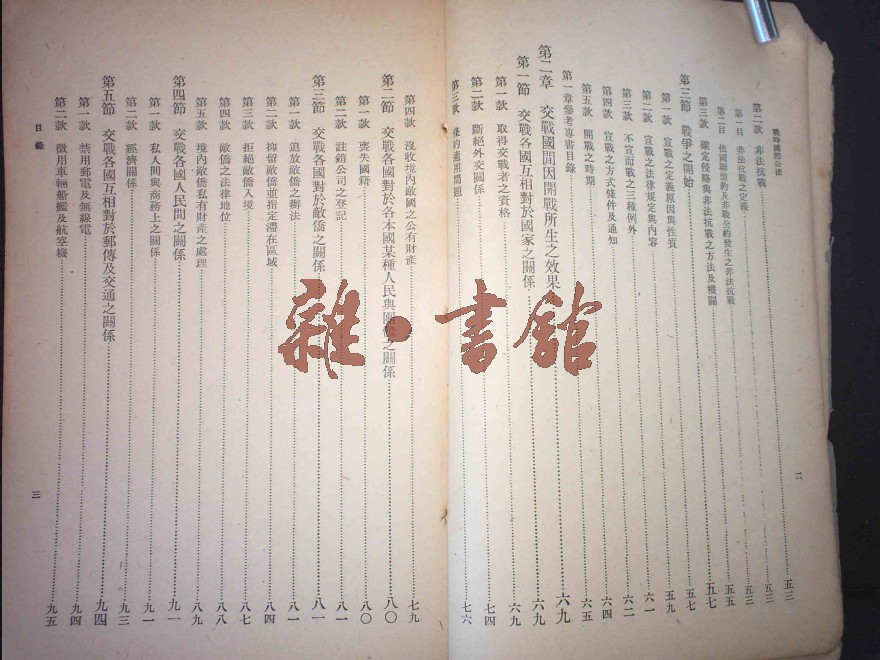 戰時國際公法
第二款 非法抗戰……五三
第一目 非法抗戰之定義……五三
第二目 依國聯盟約及非戰公約發生之非法抗戰……五五
第三款 確定侵略與非法抗戰之方法及機關……五七
第三節 戰爭之開始……五七
第一款 宣戰之定義原因與性質……五九
第二款 宣戰之法律規定與內容……六一
第三款 不宣而戰之三種例外……六二
第四款 宣戰之方式條件及通知……六四
第五款 開戰之時期……六五
第一章參考專書目錄……
第二章 交戰國間因開戰所生之效果……六九
第一節 交戰各國互相對於國家之關係……六九
第一款 取得交戰者之資格……六九
第二款 斷絕外交關係……七四
第三款 條約適用問題……七六
二
第四款 沒收境內敵國之公有財產……七九
第二節 交戰各國對於各本國某種人民與團體之關係……八〇
第一款 喪失國籍……八〇
第二款 註銷公司之登記……八一
第三節 交戰各國對於敵僑之關係……八一
第一款 追放敵僑之辦法……八一
第二款 抑留敵僑並指定滯在區域……八四
第三款 拒絕敵僑入境……八七
第四款 敵僑之法律地位……八八
第五款 境內敵僑私有財產之處理……八九
第四節 交戰各國人民間之關係……九一
第一款 私人間與商務上之關係……九一
第二款 經濟關係……九三
第五節 交戰各國互相對於郵傳及交通之關係……九四
第一款 禁用郵電及無線電……九四
第二款 徵用車輛船艦及航空機……九五
目錄
三
雜·書館